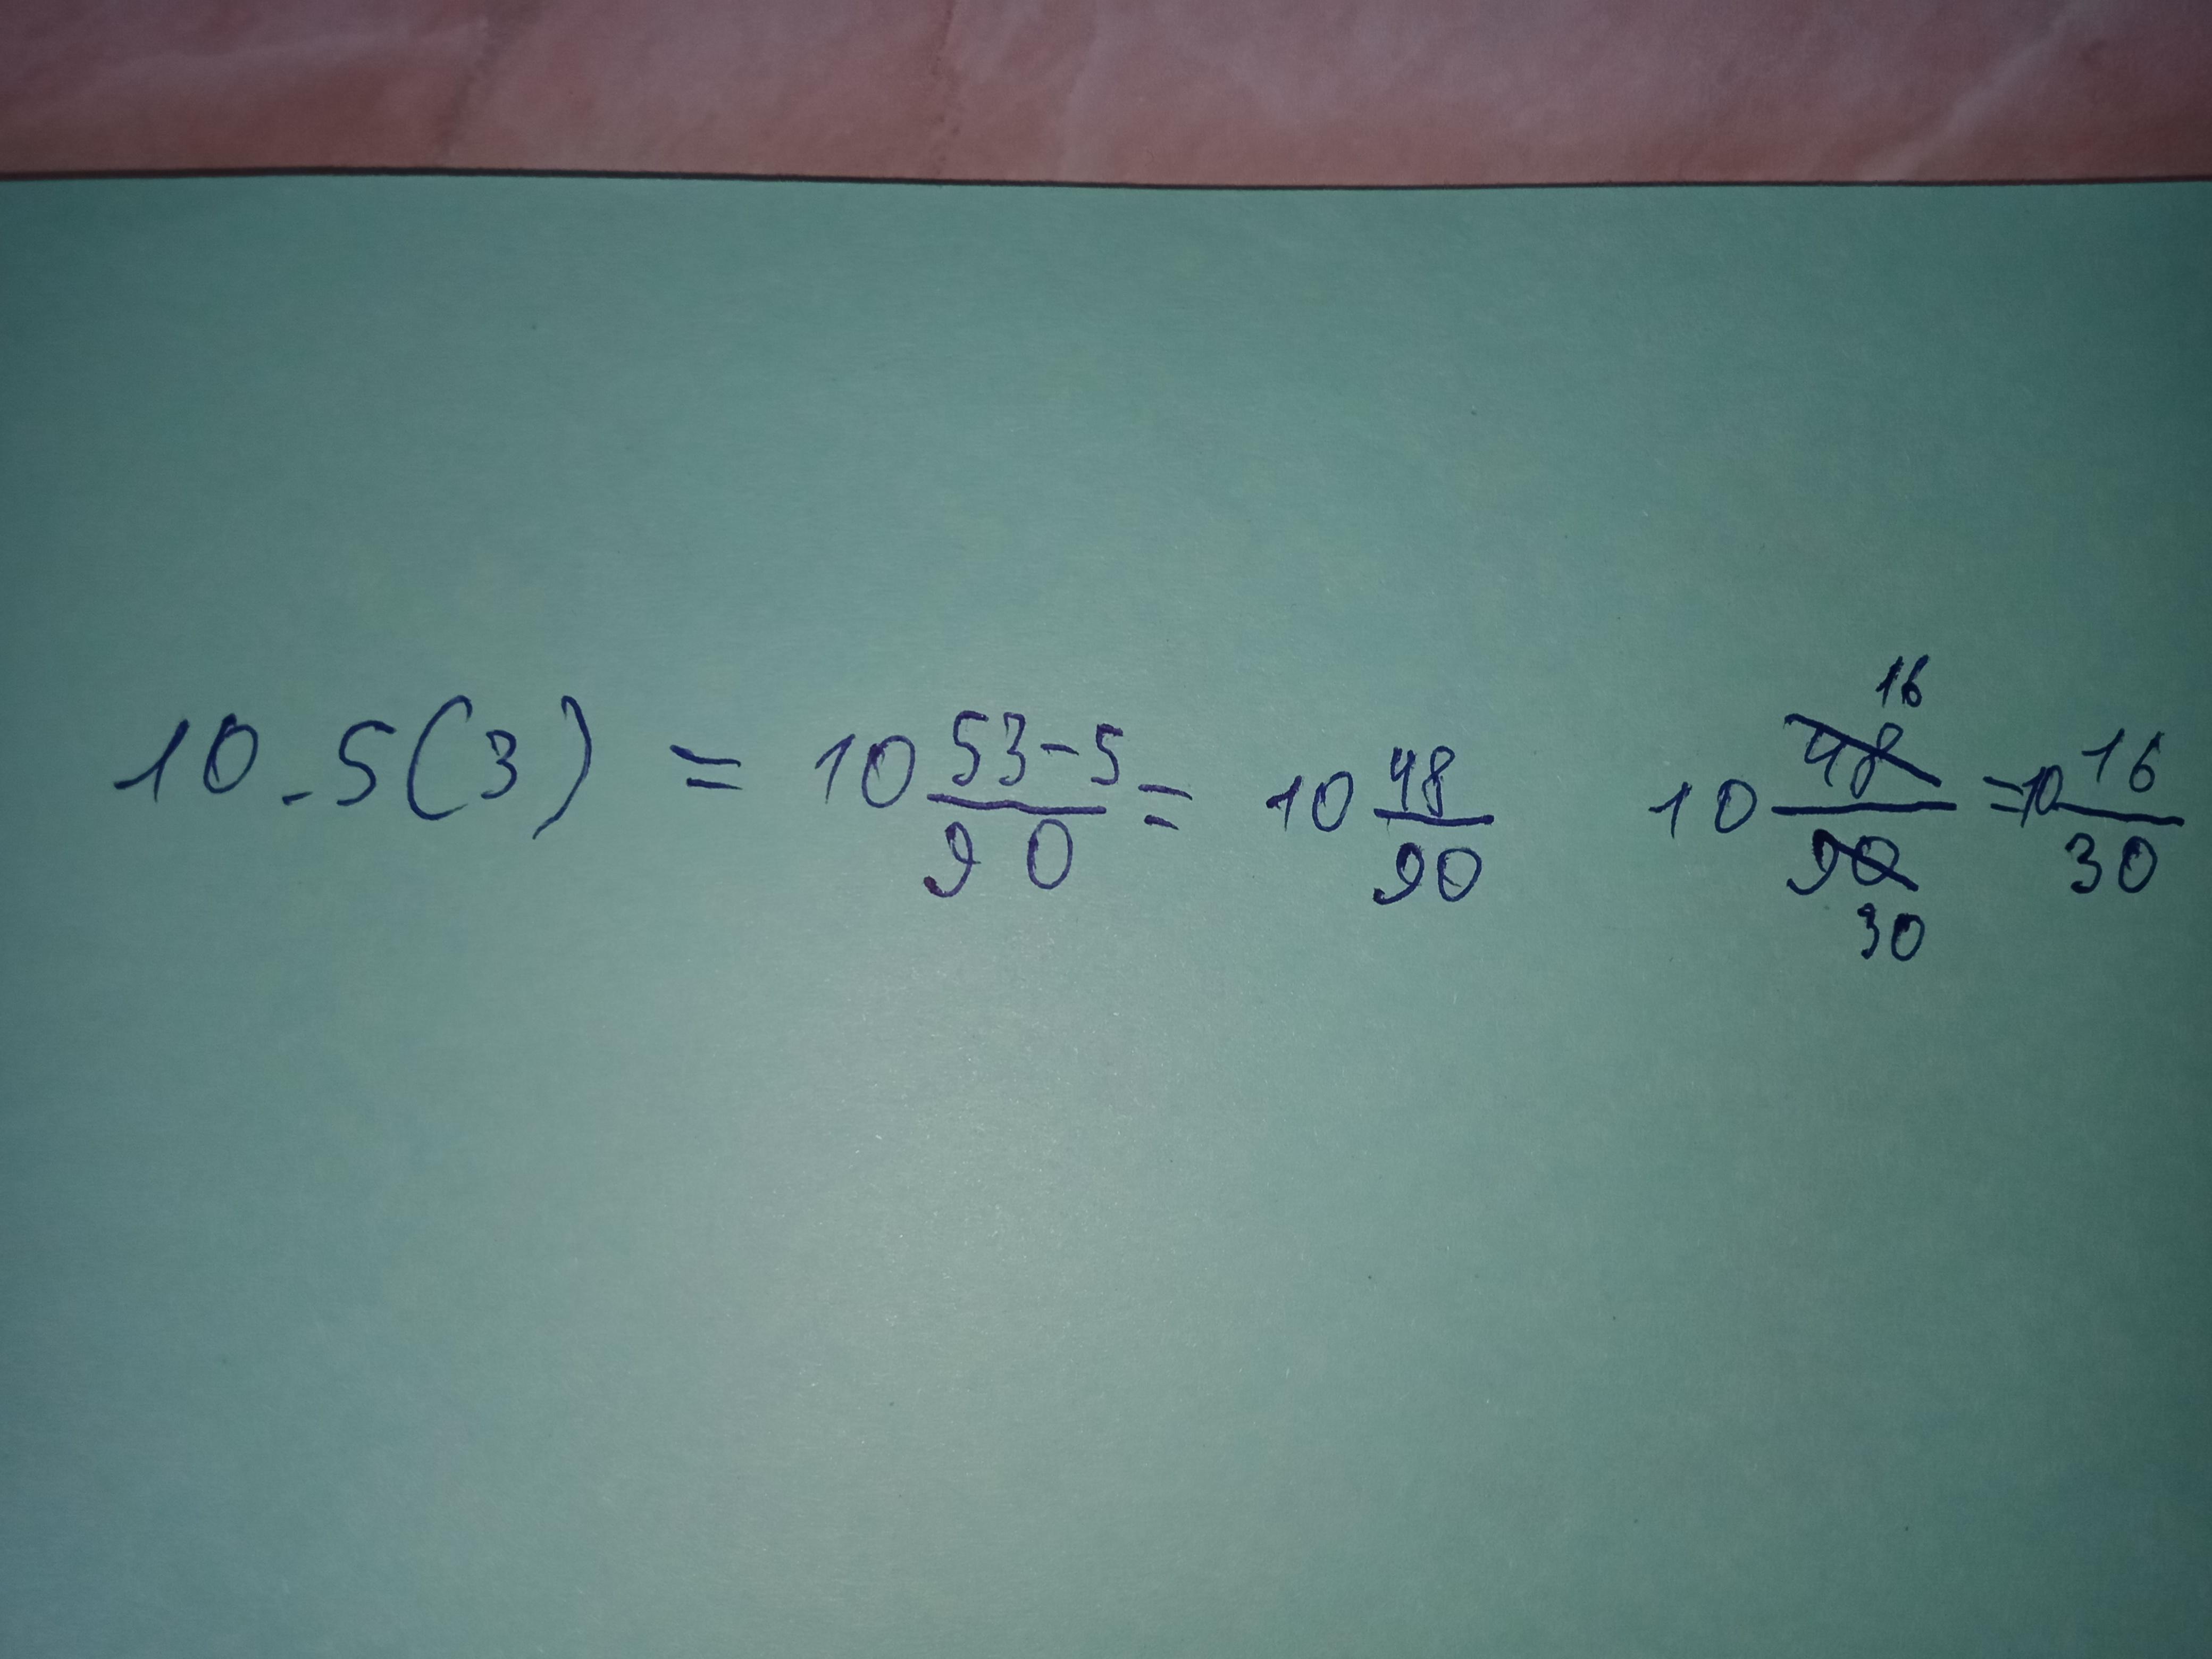 10.5(3) = 10 53-5/90 = 10 48/90 10 48/90 16 30 = 10 16/30